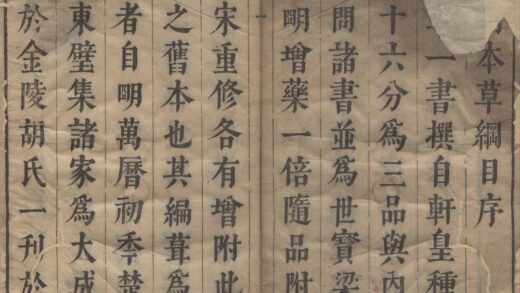 本草綱目序
一書撰自軒皇種
十六分爲三品與內
問諸書並爲世寶梁
眀增藥一倍隨品附
宋重修各有增附此
之舊本也其編葺爲
者自眀萬曆初秊楚
東璧集諸家爲大成
於金陵胡氏一刊於